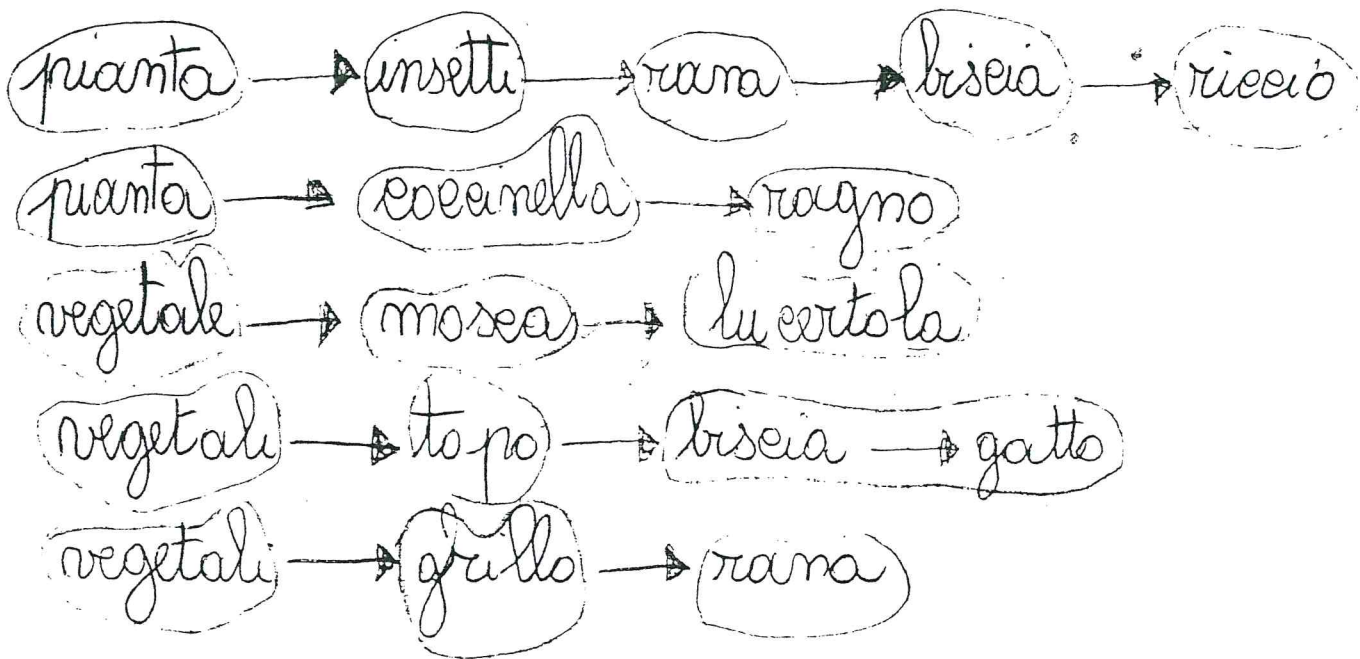 pianta → insetti → rana → biscia → riccio
pianta → coccinella → ragno
vegetale → mosca → lucertola
vegetali → topo → biscia → gatto
vegetali → grillo → rana